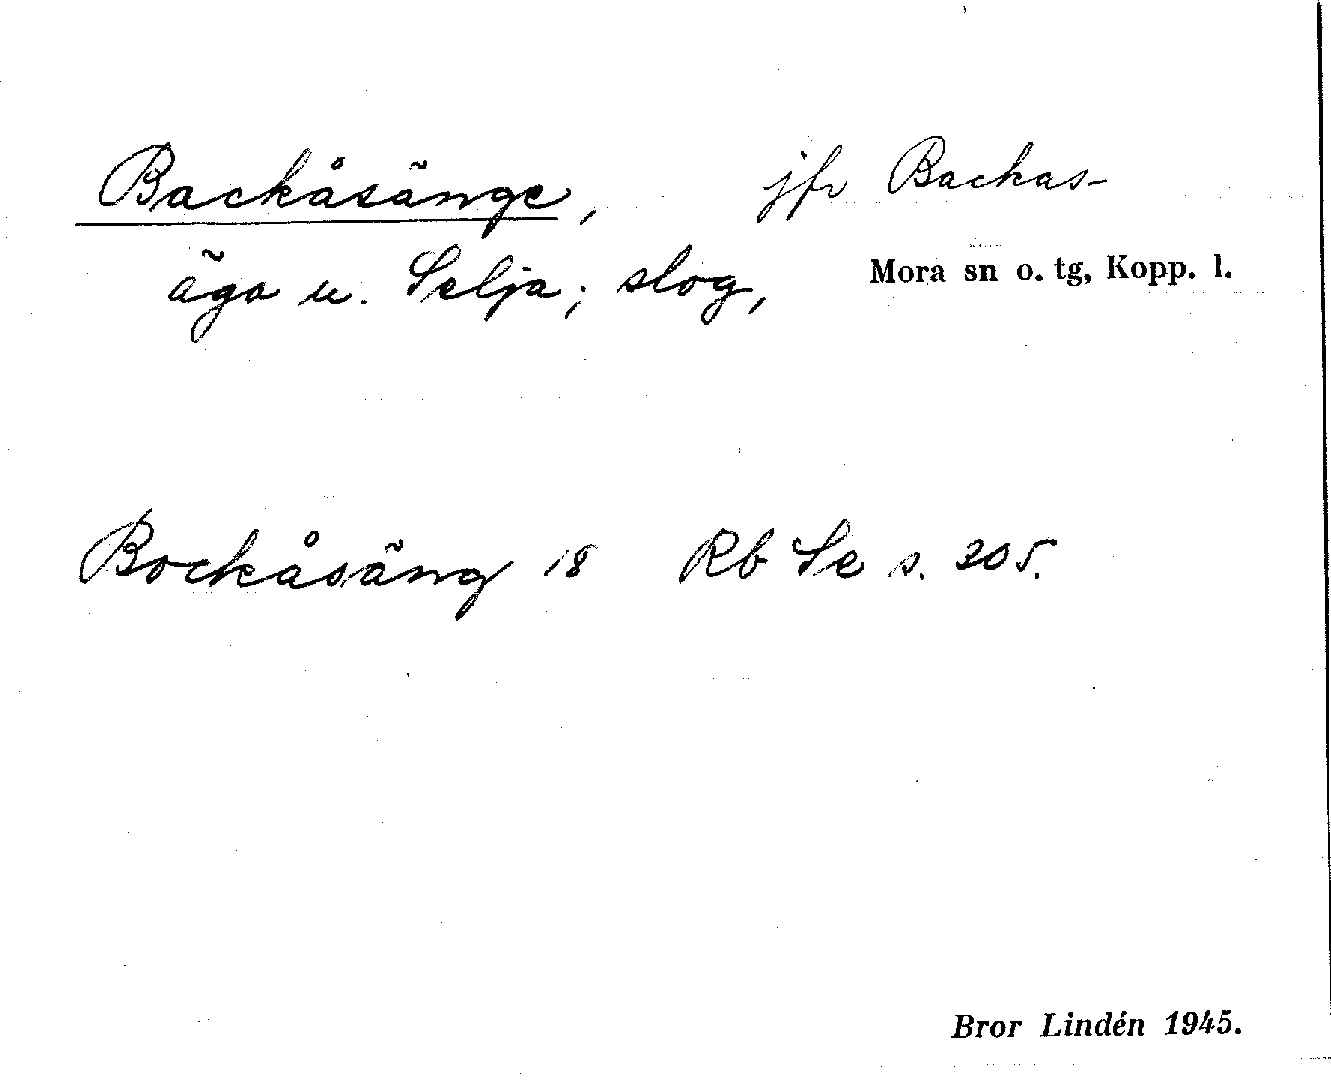 Backåsänge, jfr Backas-
äga u. Selja; slog, Mora sn o. tg, Kopp. l.
Bockåsäng 18 Rb Se s. 205.
Bror Lindén 1945.